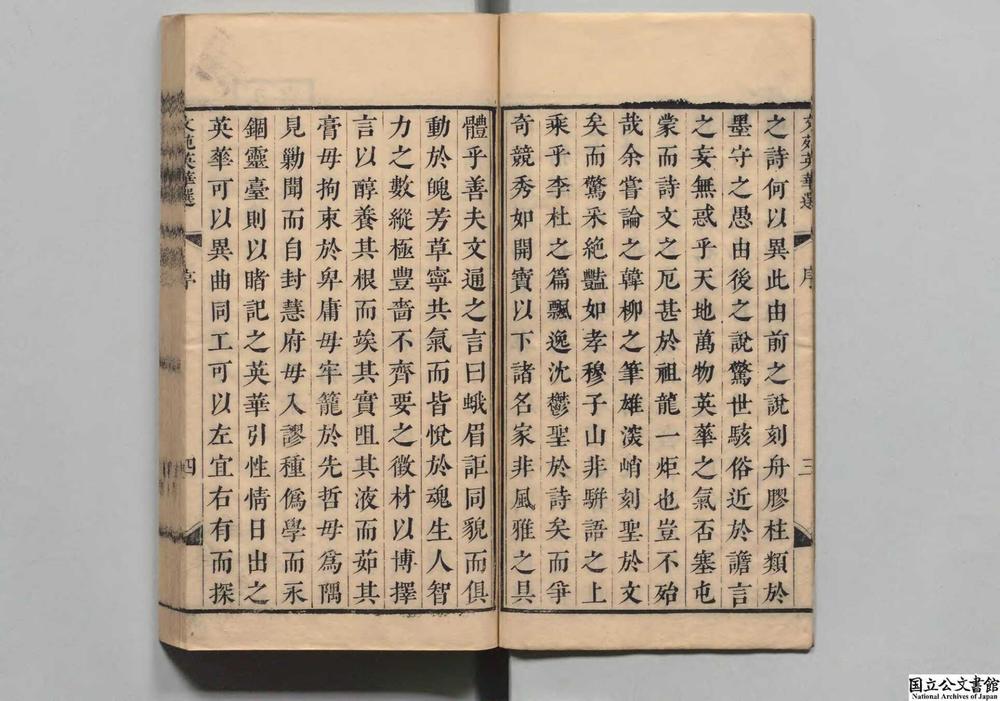 文苑英華選
序
三
之詩何以異此由前之說刻舟膠柱類於
墨守之愚由後之說驚世駭俗近於讆言
之妄無惑乎天地萬物英華之氣否塞屯
蒙而詩文之厄甚於祖龍一炬也豈不殆
哉余嘗論之韓柳之筆雄深峭刻聖於文
矣而驚采絕豔如孝穆子山非駢語之上
乘乎李杜之篇飄逸沈鬱聖於詩矣而爭
奇競秀如開寶以下諸名家非風雅之具
體乎善夫文通之言曰蛾眉詎同貌而俱
動於魄芳草寧共氣而皆悅於魂生人智
力之數縱極豐嗇不齊要之徵材以博擇
言以醇養其根而俟其實咀其液而茹其
膏毋拘束於卑庸毋牢籠於先哲毋為隅
見勦聞而自封慧府毋入謬種偽學而永
錮靈臺則以睹記之英華引性情日出之
英華可以異曲同工可以左宜右有而探
文苑英華選
序
四
国立公文書館
National Archives of Japan